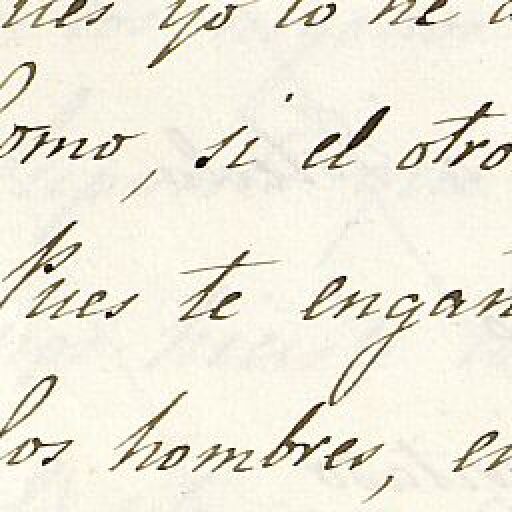 yo lo he
Como, si el otro
Pues te engañ
los hombres, en